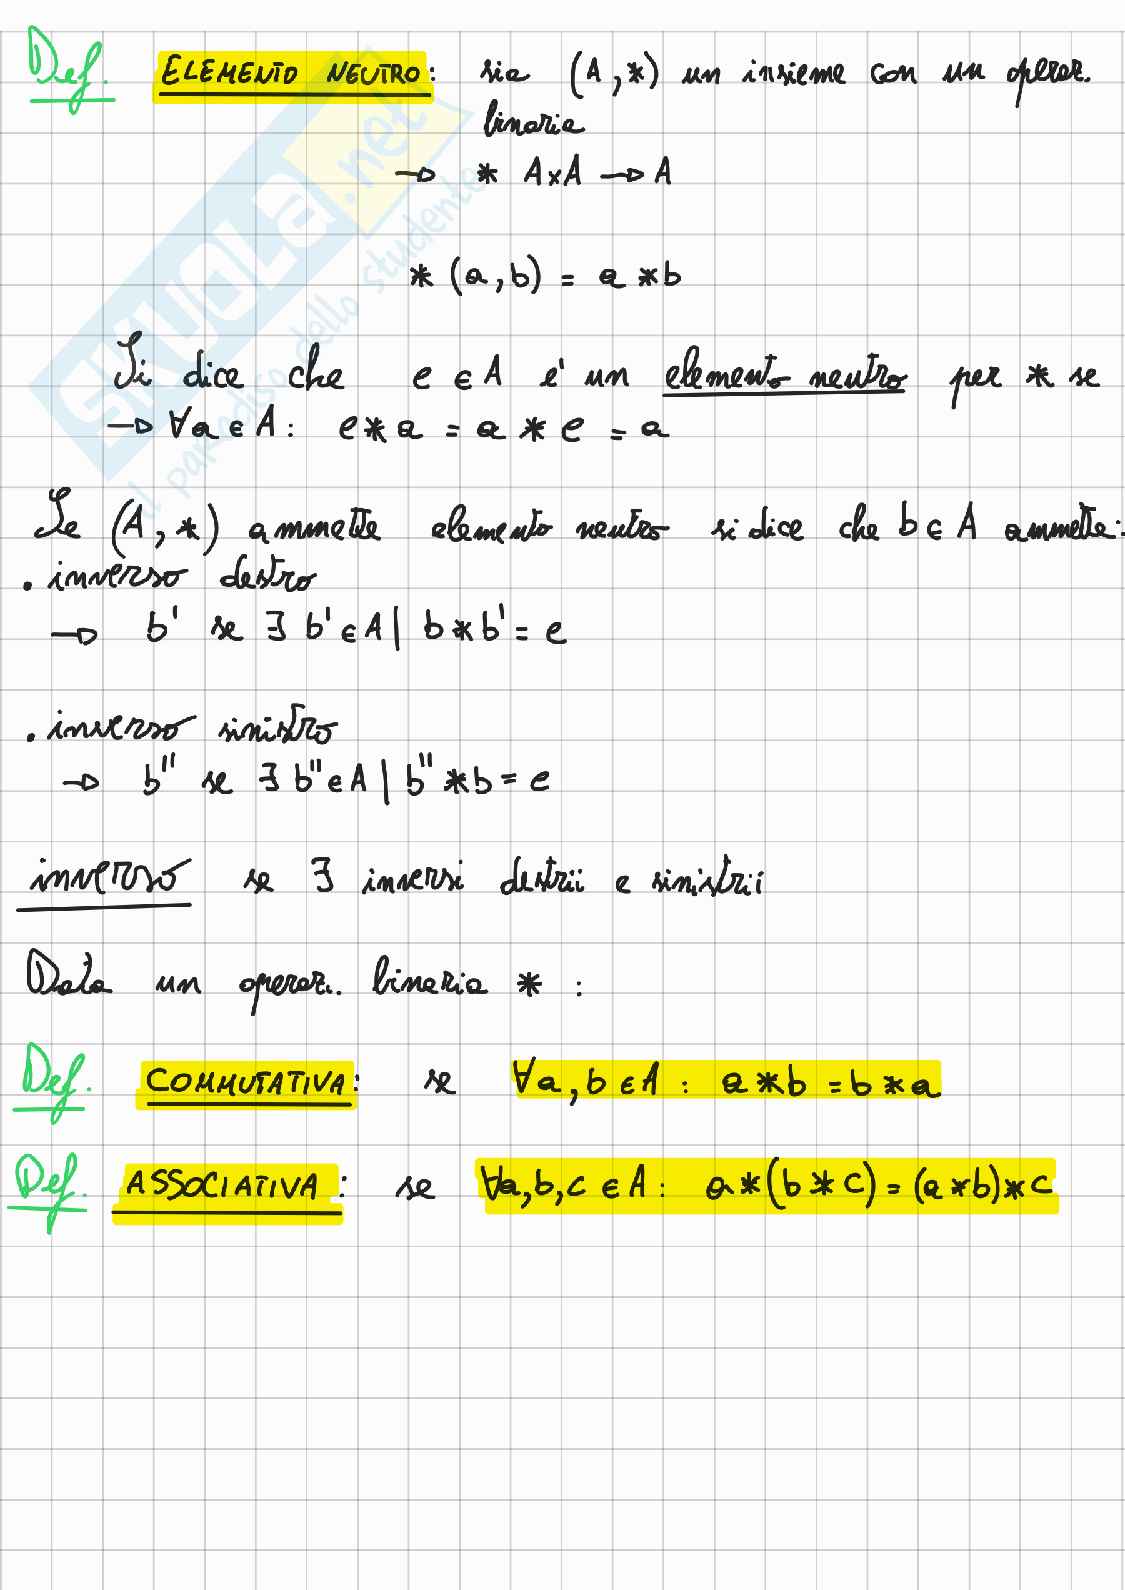 Def. ELEMENTO NEUTRO: sia (A,*) un insieme con un operaz.
binaria
→ * A×A → A
*(a,b) = a*b
Si dice che e ∈ A e' un elemento neutro per * se
→ ∀a ∈ A: e*a = a*e = a
Se (A,*) ammette elemento neutro si dice che b ∈ A ammette:
. inverso destro
→ b' se ∃ b' ∈ A | b*b' = e
. inverso sinistro
→ b'' se ∃ b'' ∈ A | b''*b = e
inverso se ∃ inversi destrii e sinistrii
Data un operaz. binaria * :
Def. COMMUTATIVA: se ∀a,b ∈ A: a*b = b*a
Def. ASSOCIATIVA: se ∀a,b,c ∈ A: a*(b*c) = (a*b)*c
SKUOLA.net
il paradiso dello studente